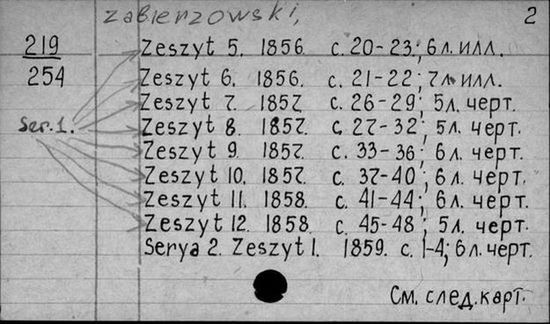 zabierzowski,
2
219
254
Ser. 1.
Zeszyt 5. 1856. с. 20-23; 6 л. илл.
Zeszyt 6. 1856. с. 21-22; 7 л. илл.
Zeszyt 7. 1857. с. 26-29; 5 л. черт.
Zeszyt 8. 1857. с. 27-32; 5 л. черт.
Zeszyt 9. 1857. с. 33-36; 6 л. черт.
Zeszyt 10. 1857. с. 37-40; 6 л. черт.
Zeszyt 11. 1858. с. 41-44; 6 л. черт.
Zeszyt 12. 1858. с. 45-48; 5 л. черт.
Serya 2. Zeszyt 1. 1859. с. 1-4; 6 л. черт.
См. след. карт.